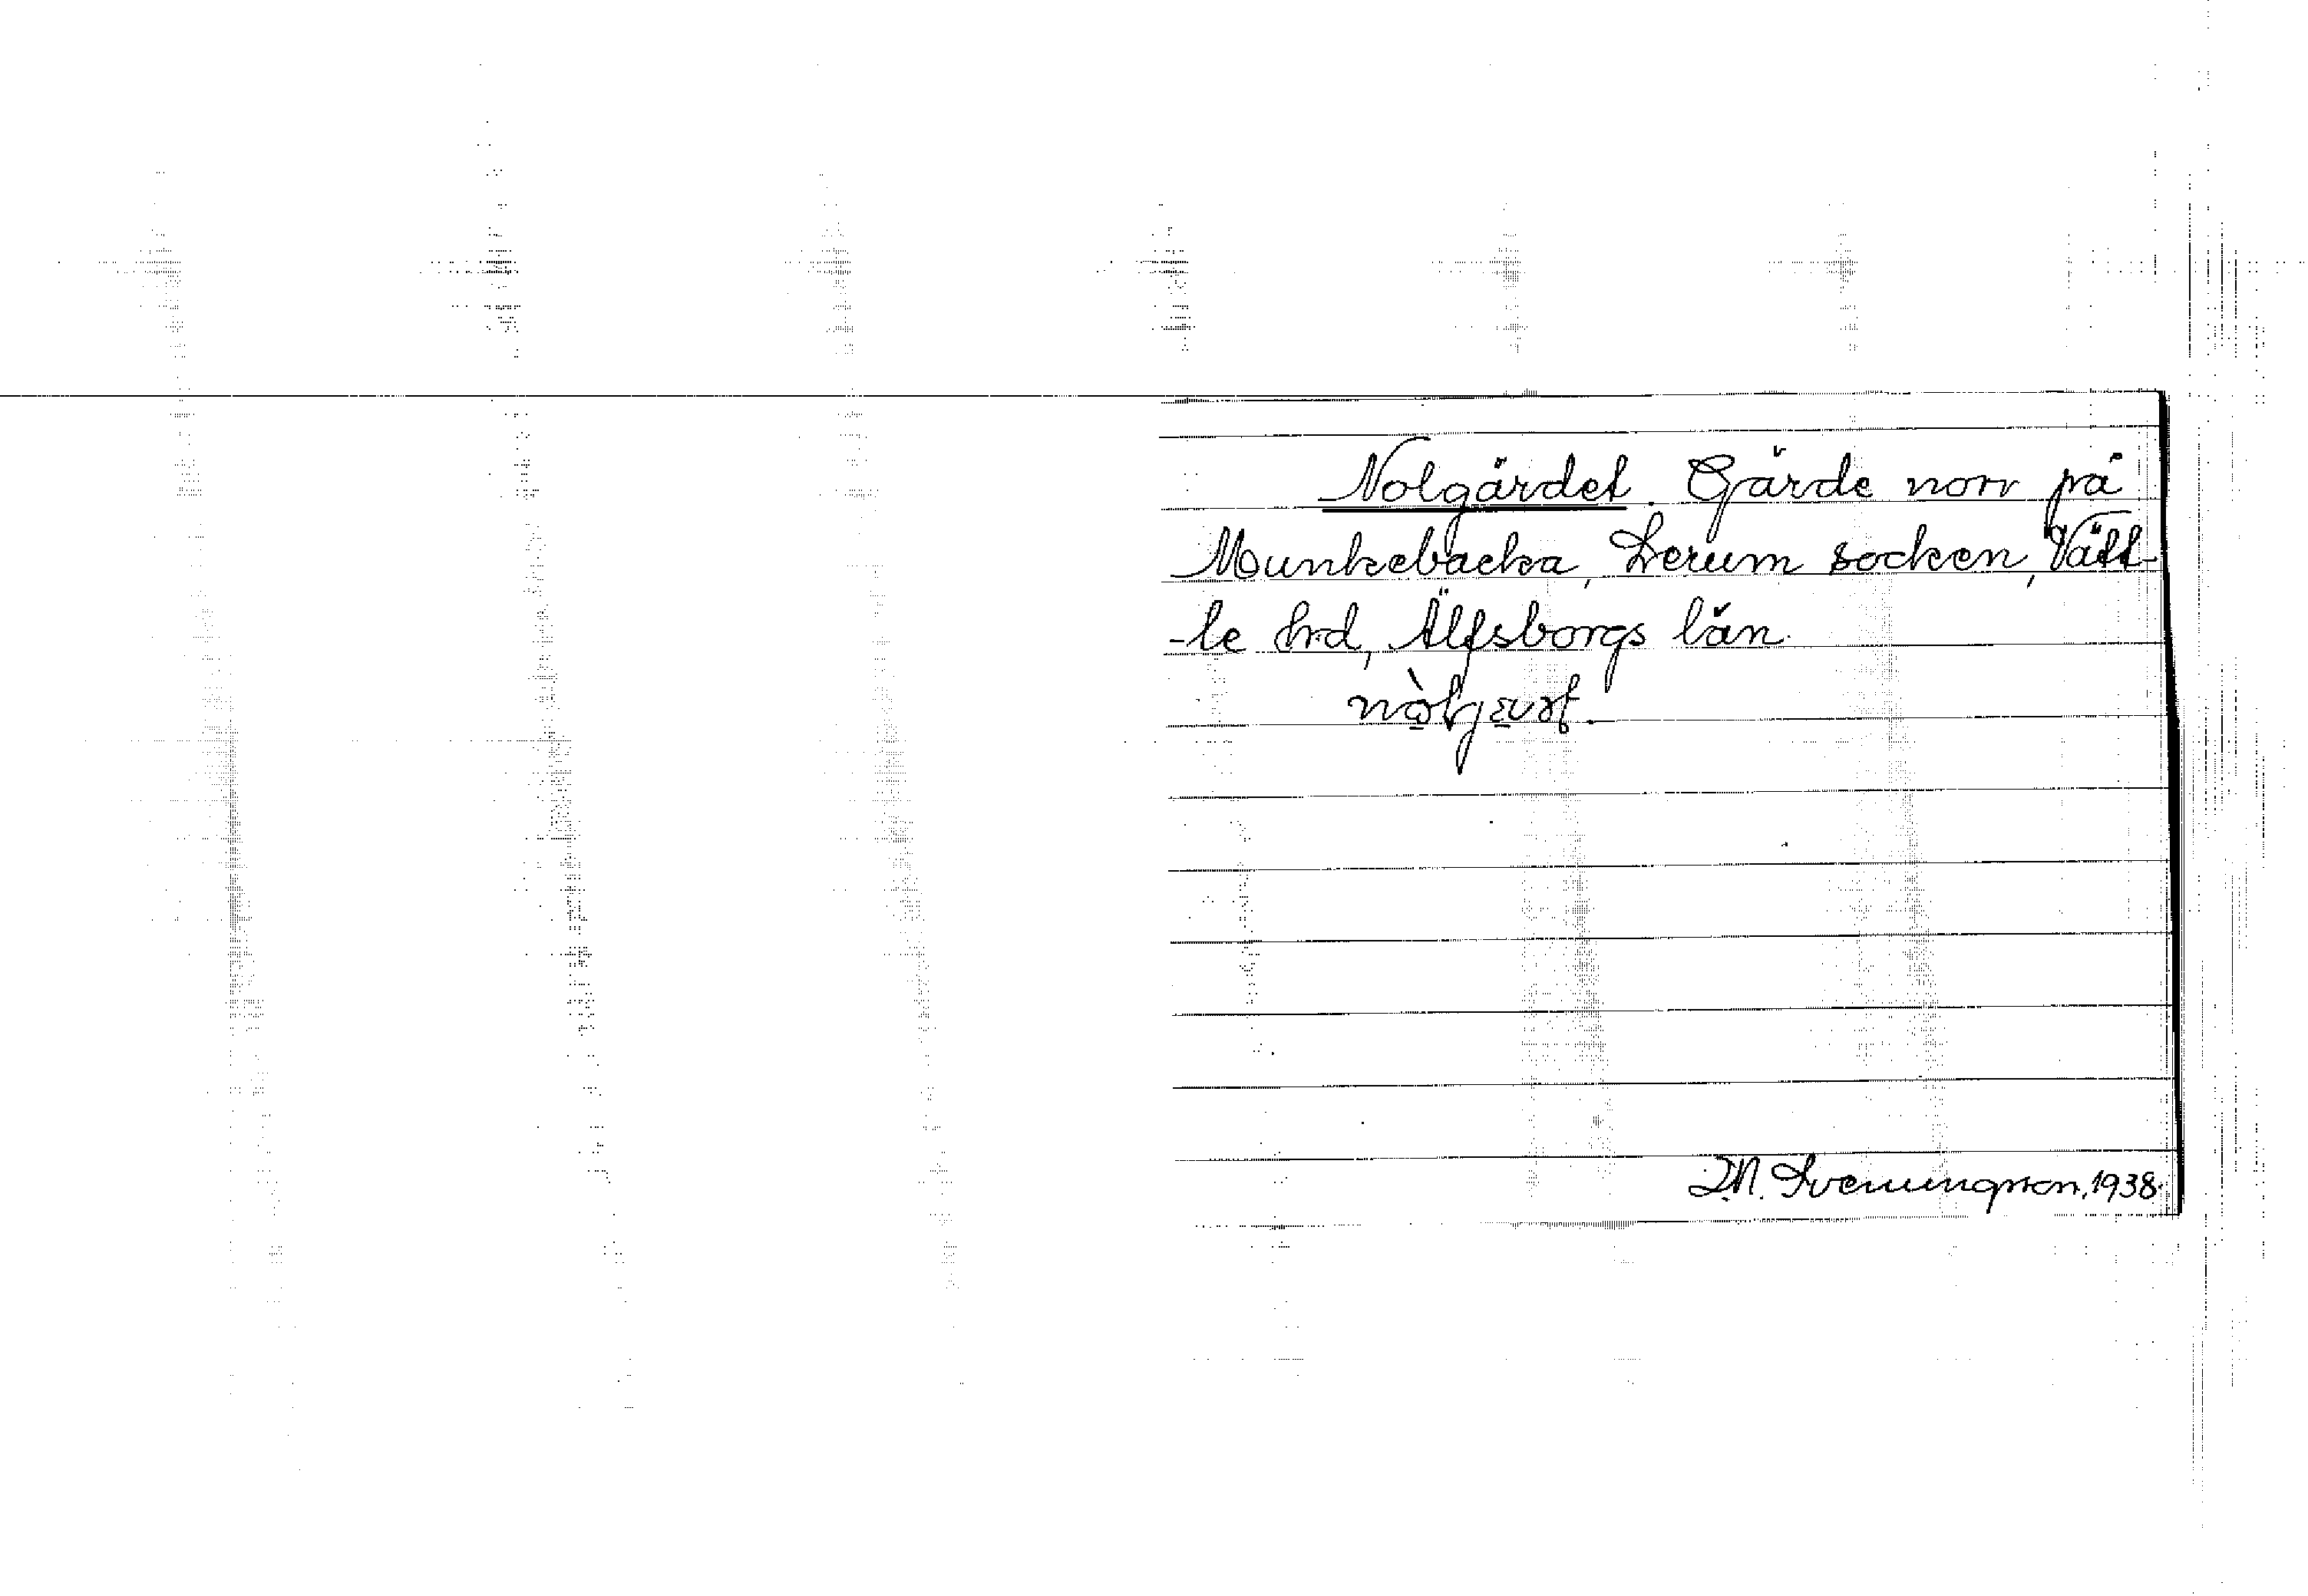 Nolgärdet. Gärde norr på
Munkebacka, Lerum socken, Vätt-
-le hrd, Älfsborgs län.
D.N. Svenningsson, 1938.